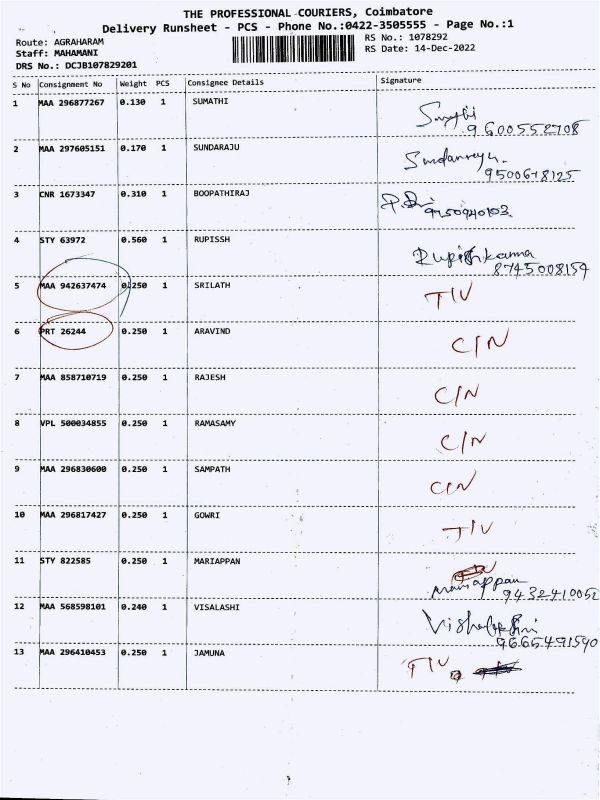 THE PROFESSIONAL COURIERS, Coimbatore
Delivery Runsheet - PCS - Phone No.:0422-3505555 - Page No.:1
Route: AGRAHARAM RS No.: 1078292
Staff: MAHAMANI RS Date: 14-Dec-2022
DRS No.: DCJB107829201
S No Consignment No Weight PCS Consignee Details Signature
1 MAA 296877267 0.130 1 SUMATHI
9600552708
2 MAA 297605151 0.170 1 SUNDARAJU
9500678125
3 CNR 1673347 0.310 1 BOOPATHIRAJ
9750940103
4 STY 63972 0.560 1 RUPISSH
8745008159
5 MAA 942637474 0.250 1 SRILATH TIV
6 PRT 26244 0.250 1 ARAVIND C/N
7 MAA 858710719 0.250 1 RAJESH C/N
8 VPL 500034855 0.250 1 RAMASAMY C/N
9 MAA 296830600 0.250 1 SAMPATH C/N
10 MAA 296817427 0.250 1 GOWRI TIV
11 STY 822585 0.250 1 MARIAPPAN
Mariappan 9432410052
12 MAA 568598101 0.240 1 VISALASHI
9665491590
13 MAA 296410453 0.250 1 JAMUNA TIV